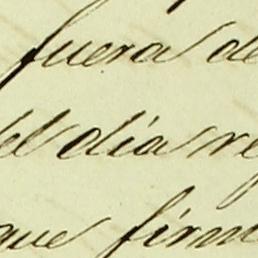 fuera de
del día re
que firm